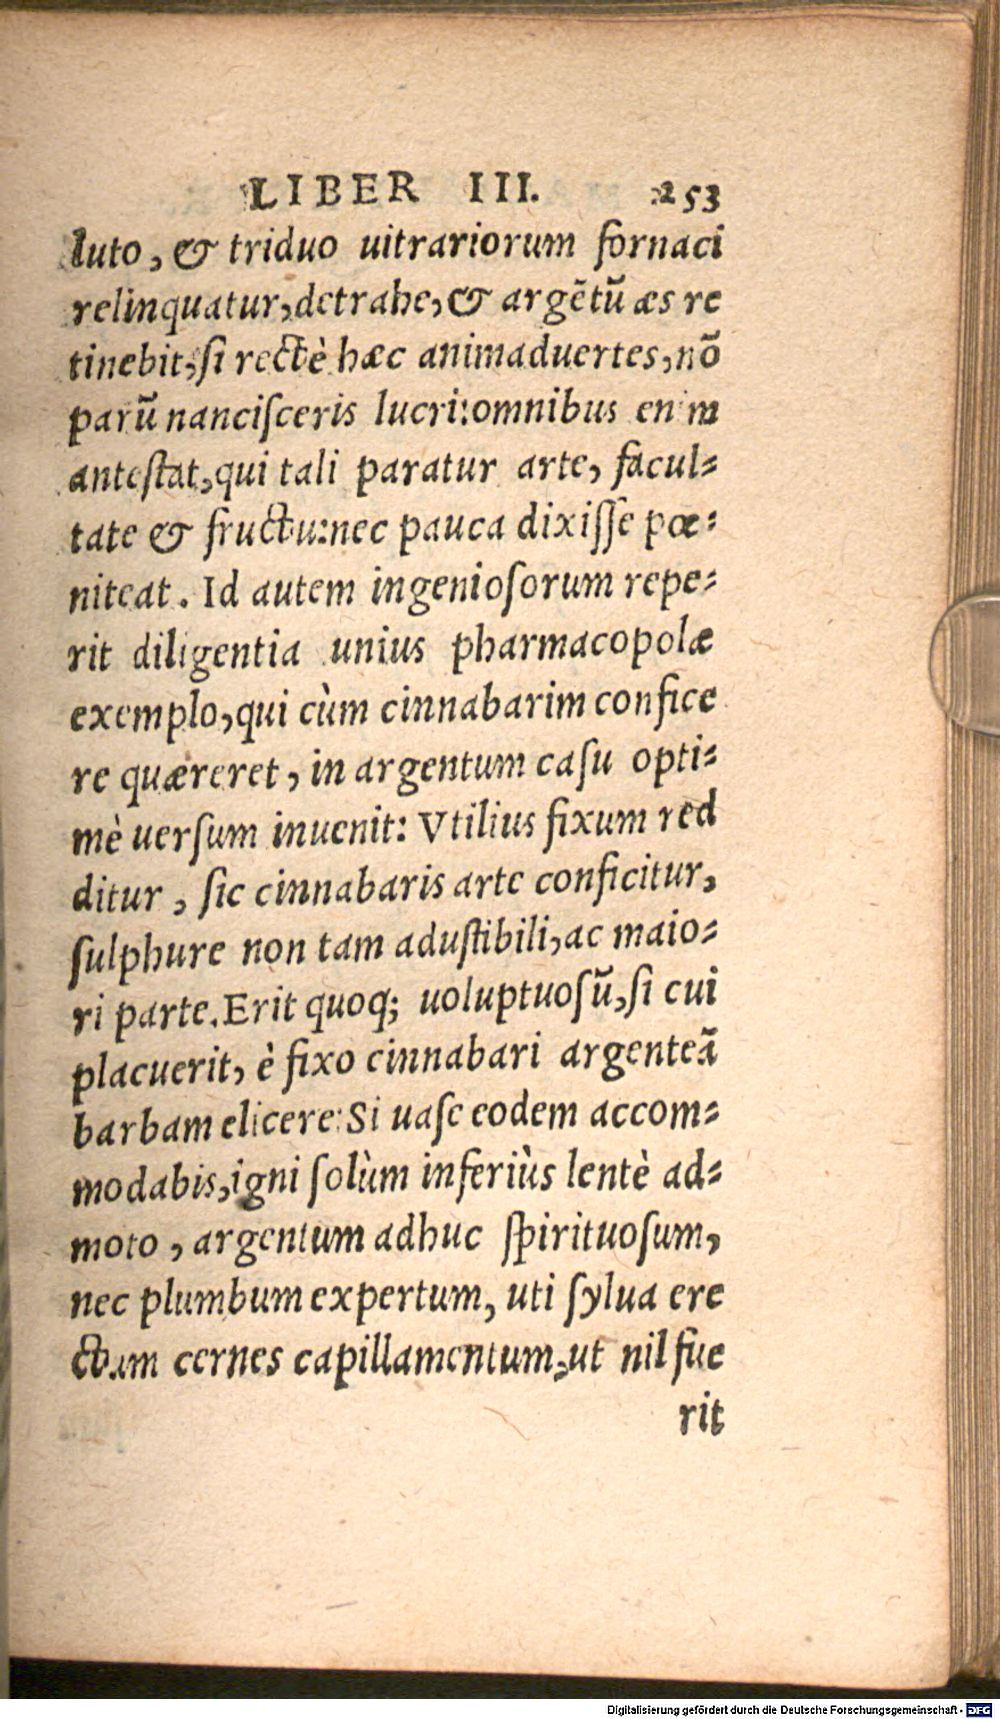 LIBER III. 253
luto, & triduo uitrariorum fornaci
relinquatur, detrahe, & argẽtũ æs re
tinebit, ſi rectè hæc animaduertes, nõ
parũ nanciſceris lucri: omnibus enim
anteſtat, qui tali paratur arte, facul-
tate & fructu: nec pauca dixiſſe pœ-
niteat. Id autem ingenioſorum repe-
rit diligentia unius pharmacopolæ
exemplo, qui cùm cinnabarim confice
re quæreret, in argentum caſu opti-
mè uerſum inuenit: Vtilius fixum red
ditur, ſic cinnabaris arte conficitur,
ſulphure non tam aduſtibili, ac maio-
ri parte. Erit quoq; uoluptuoſũ, ſi cui
placuerit, è fixo cinnabari argenteã
barbam elicere: Si uaſe eodem accom-
modabis, igni ſolùm inferiùs lentè ad-
moto, argentum adhuc ſpirituoſum,
nec plumbum expertum, uti ſylua ere
ctum cernes capillamentum, ut nil fue
rit
Digitalisierung gefördert durch die Deutsche Forschungsgemeinschaft - DFG